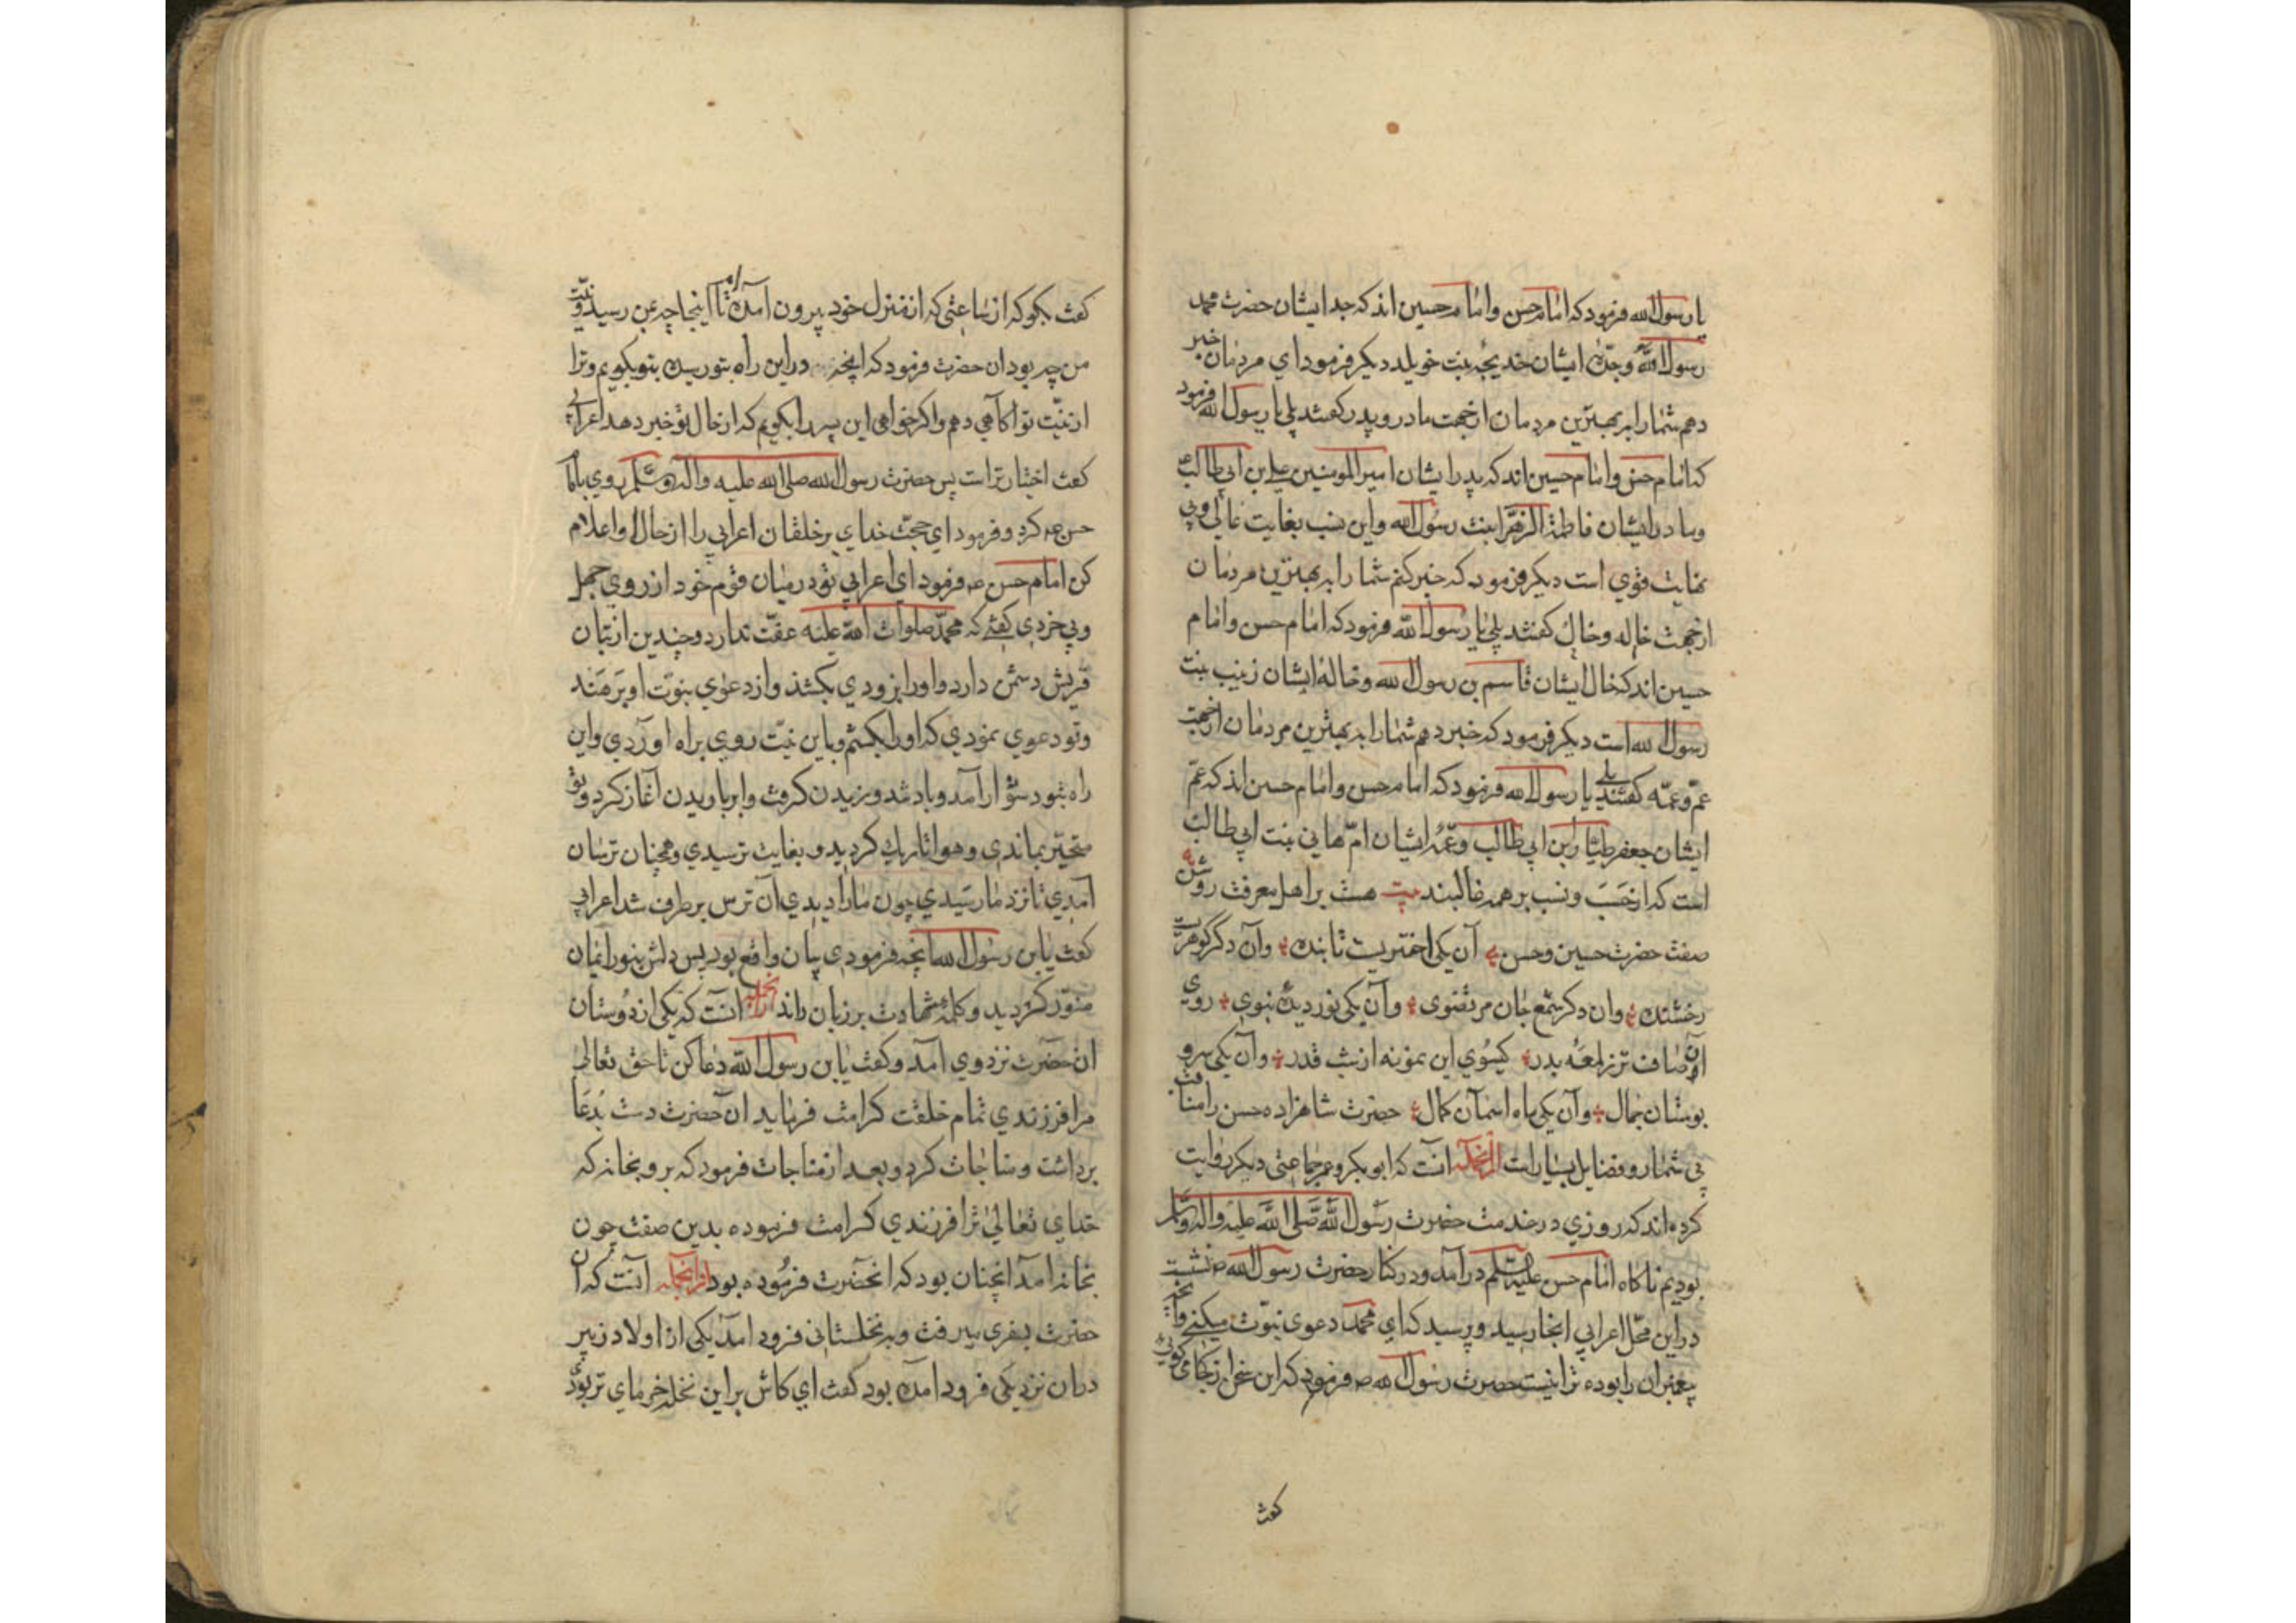 یا رسول الله فرمود که امام حسن و امام حسین اند که جد ایشان حضرت محمد
رسول الله و جدّهٔ ایشان خدیجه بنت خویلد دیکر فرمود ای مردمان خبر
دهم شما را به بهترین مردمان از جهت مادر و پدر کفتند بلی یا رسول الله فرمود
که امام حسن و امام حسین اند که پدر ایشان امیرالمومنین علی بن ابی طالب
و مادر ایشان فاطمة الزهرا بنت رسول الله و این نسب بغایت عالی و بی
نهایت قوی است دیکر فرمود که خبر کنم شما را به بهترین مردمان
از جهت خاله و خال کفتند بلی یا رسول الله فرمود که امام حسن و امام
حسین اند که خال ایشان قاسم بن رسول الله و خالهٔ ایشان زینب بنت
رسول الله است دیکر فرمود که خبر دهم شما را به بهترین مردمان از جهت
عمّ و عمّه کفتند بلی یا رسول الله فرمود که امام حسن و امام حسین اند که عمّ
ایشان جعفر طیّار بن ابی طالب و عمّهٔ ایشان امّ هانی بنت ابی طالب
است که از حَسَب و نسب بر همه غالبند بیت هست بر اهل معرفت روشن
صفت حضرت حسین و حسن آن یکی اختریست تابنده وآن دکر کوهریست
رخشنده وان دکر شمع جان مرتضوی وآن یکی نور دیدهٔ نبوی روی
آن صاف تر ز لمعهٔ بدر کیسوی این نمونه از شب قدر وآن یکی سرو
بوستان جمال وآن یکی ماه اسمان کمال حضرت شاهزاده حسن را مناقب
بی شمار و فضایل بسیار است ازانجمله انست که ابوبکر و عمر و جماعتی دیکر روایت
کرده اند که روزی در خدمت حضرت رسول الله صلی الله علیه واله وسلم
بودیم ناکاه امام حسن علیه السلم درآمد و در کنار حضرت رسول الله ص نشست
در این محلّ اعرابی انجا رسید و پرسید که ای محمد دعوی نبوّت میکنی و آنچه
پیغمبران را بوده ترا نیست حضرت رسول الله ص فرمود که این سخن از کجا می کوئی
کفت
کفت بکو که از ساعتی که از منزل خود بیرون آمدهٔ تا اینجا چه بمن رسید و نیّت
من چه بود ان حضرت فرمود که آنچه در این راه بتو رسیده بتو بکویم و ترا
از نیّت تو آکاهی دهم و اکر خواهی این پسر را بکویم که از حال تو خبر دهد اعرابی
کفت اختیار تراست پس حضرت رسول الله صلی الله علیه واله وسلم روی با امام
حسن ع کرد و فرمود ای حجّت خدای بر خلقان اعرابی را از حال او اعلام
کن امام حسن ع فرمود ای اعرابی تو در میان قوم خود از روی جهل
و بی خردی کفتی که محمّد صلوات الله علیه عفّت ندارد و چندین از بتان
قریش دشمن دارد و او را بزودی بکشند و از دعوی نبوّت او برهند
و تو دعوی نمودی که او را بکشم و باین نیّت روی براه اوردی و این
راه بتو دشوار آمد و باد تند وزیدن کرفت و ابر باریدن آغاز کرد و تو
متحیّر بماندی و هوا تاریک کردید و بغایت ترسیدی و همچنان ترسان
آمدی تا نزد ما رسیدی چون ما را دیدی آن ترس برطرف شد اعرابی
کفت یا بن رسول الله آنچه فرمودی بیان واقع بود پس دلش بنور ایمان
منوّر کردید و کلمهٔ شهادت بر زبان راند ازانجمله انست که یکی از دوستان
ان حضرت نزد وی آمد و کفت یا بن رسول الله دعا کن تا حق تعالی
مرا فرزندی تمام خلقت کرامت فرماید ان حضرت دست بدعا
برداشت و مناجات کرد و بعد از مناجات فرمود که برو بخانه که
خدای تعالی ترا فرزندی کرامت فرموده بدین صفت چون
بخانه آمد آنچنان بود که آنحضرت فرموده بود ازانجمله آنست که آن
حضرت بسفری میرفت و به نخلستانی فرود آمد یکی از اولاد زبیر
در ان نزدیکی فرود امده بود کفت ای کاش بر این نخله خرمای تر بودی